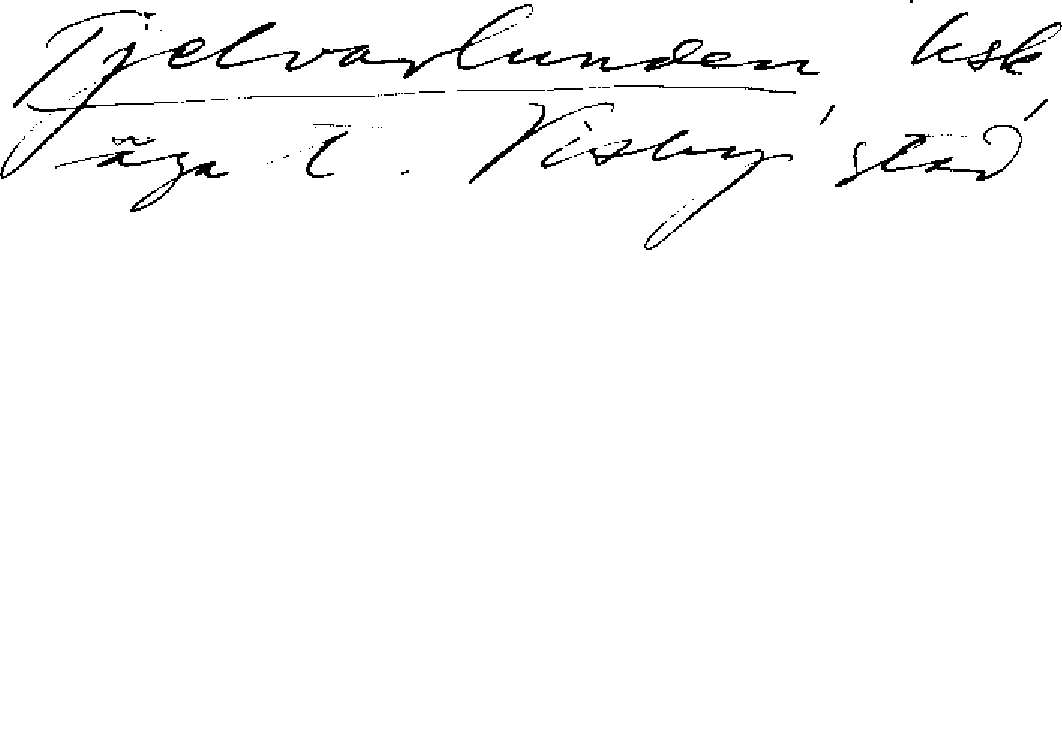 Tjelvarlunden ksk
äga t. Visby stad